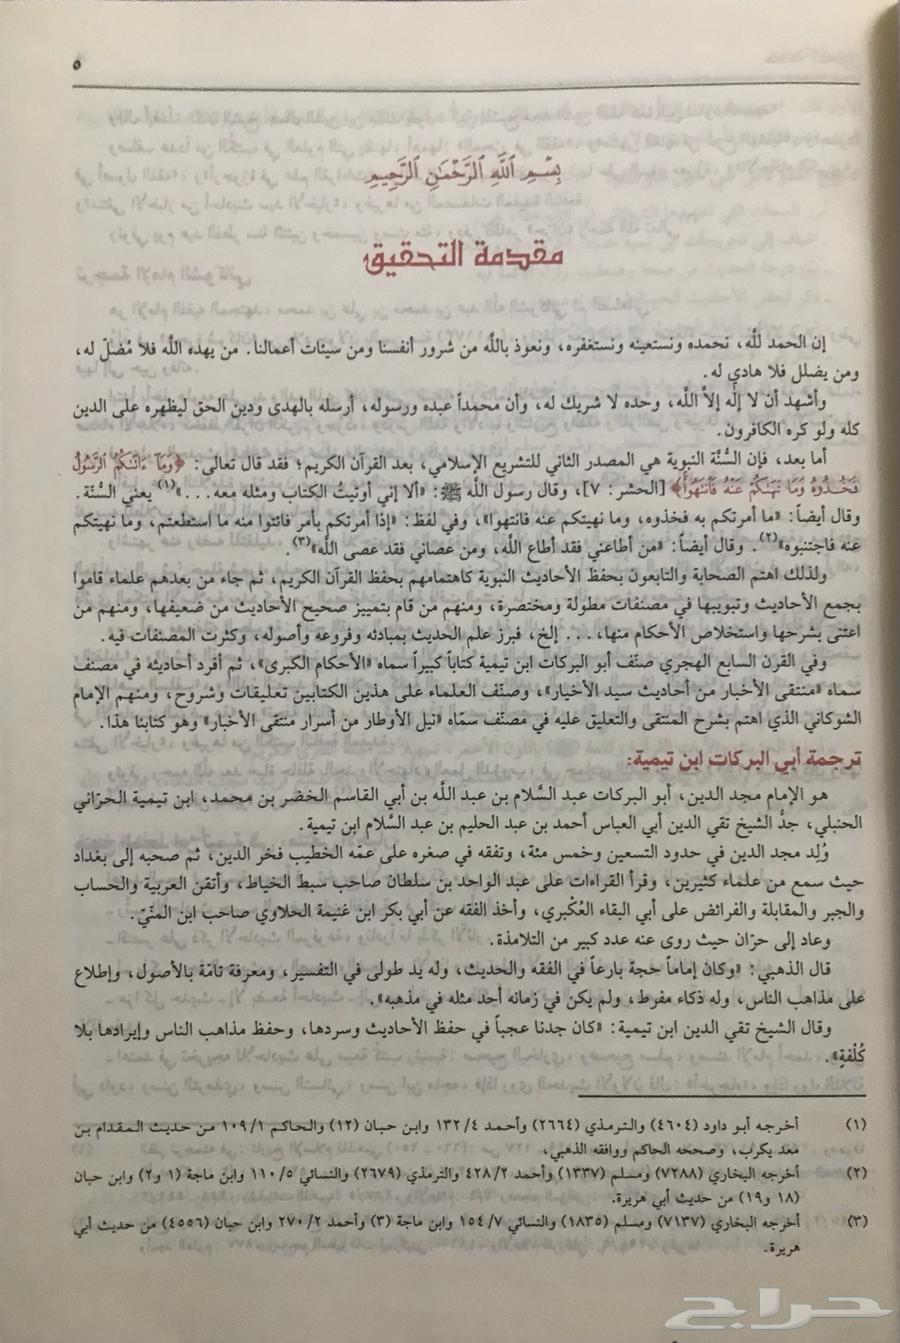 ٥
بِسْمِ ٱللَّهِ ٱلرَّحْمَٰنِ ٱلرَّحِيمِ
مقدمة التحقيق
إن الحمد للَّه، نحمده ونستعينه ونستغفره، ونعوذ باللَّه من شرور أنفسنا ومن سيئات أعمالنا. من يهده اللَّه فلا مُضلّ له،
ومن يضلل فلا هادي له.
وأشهد أن لا إلٰه إلاَّ اللَّه، وحده لا شريك له، وأن محمداً عبده ورسوله، أرسله بالهدى ودين الحق ليظهره على الدين
كله ولو كره الكافرون.
أما بعد، فإن السُّنَّة النبوية هي المصدر الثاني للتشريع الإسلامي، بعد القرآن الكريم؛ فقد قال تعالى: ﴿وَمَآ ءَاتَىٰكُمُ ٱلرَّسُولُ
فَخُذُوهُ وَمَا نَهَىٰكُمْ عَنْهُ فَٱنتَهُوا۟﴾ [الحشر: ٧]، وقال رسول اللَّه ﷺ: «ألا إني أوتيتُ الكتاب ومثله معه...»(١) يعني السُّنَّة.
وقال أيضاً: «ما أمرتكم به فخذوه، وما نهيتكم عنه فانتهوا»، وفي لفظ: «إذا أمرتكم بأمر فائتوا منه ما استطعتم، وما نهيتكم
عنه فاجتنبوه»(٢). وقال أيضاً: «من أطاعني فقد أطاع اللَّه، ومن عصاني فقد عصى اللَّه»(٣).
ولذلك اهتم الصحابة والتابعون بحفظ الأحاديث النبوية كاهتمامهم بحفظ القرآن الكريم، ثم جاء من بعدهم علماء قاموا
بجمع الأحاديث وتبويبها في مصنفات مطولة ومختصرة، ومنهم من قام بتمييز صحيح الأحاديث من ضعيفها، ومنهم من
اعتنى بشرحها واستخلاص الأحكام منها، ... إلخ، فبرز علم الحديث بمبادئه وفروعه وأصوله، وكثرت المصنفات فيه.
وفي القرن السابع الهجري صنّف أبو البركات ابن تيمية كتاباً كبيراً سماه «الأحكام الكبرى»، ثم أفرد أحاديثه في مصنف
سماه «منتقى الأخبار من أحاديث سيد الأخيار»، وصنّف العلماء على هذين الكتابين تعليقات وشروح، ومنهم الإمام
الشوكاني الذي اهتم بشرح المنتقى والتعليق عليه في مصنّف سمّاه «نيل الأوطار من أسرار منتقى الأخبار» وهو كتابنا هذا.
ترجمة أبي البركات ابن تيمية:
هو الإمام مجد الدين، أبو البركات عبد السَّلام بن عبد اللَّه بن أبي القاسم الخضر بن محمد، ابن تيمية الحرّاني
الحنبلي، جدُّ الشيخ تقي الدين أبي العباس أحمد بن عبد الحليم بن عبد السَّلام ابن تيمية.
وُلِد مجد الدين في حدود التسعين وخمس مئة، وتفقه في صغره على عمّه الخطيب فخر الدين، ثم صحبه إلى بغداد
حيث سمع من علماء كثيرين، وقرأ القراءات على عبد الواحد بن سلطان صاحب سبط الخياط، وأتقن العربية والحساب
والجبر والمقابلة والفرائض على أبي البقاء العُكْبري، وأخذ الفقه عن أبي بكر ابن غنيمة الحلاوي صاحب ابن المنّيّ.
وعاد إلى حرّان حيث روى عنه عدد كبير من التلامذة.
قال الذهبي: «وكان إماماً حجة بارعاً في الفقه والحديث، وله يد طولى في التفسير، ومعرفة تامّة بالأصول، وإطلاع
على مذاهب الناس، وله ذكاء مفرط، ولم يكن في زمانه أحد مثله في مذهبه».
وقال الشيخ تقي الدين ابن تيمية: «كان جدنا عجباً في حفظ الأحاديث وسردها، وحفظ مذاهب الناس وإيرادها بلا
كُلْفةٍ».
(١) أخرجه أبو داود (٤٦٠٤) والترمذي (٢٦٦٤) وأحمد ٤/١٣٢ وابن حبان (١٢) والحاكم ١/١٠٩ من حديث المقدام بن
معد يكرب، وصححه الحاكم ووافقه الذهبي.
(٢) أخرجه البخاري (٧٢٨٨) ومسلم (١٣٣٧) وأحمد ٢/٤٢٨ والترمذي (٢٦٧٩) والنسائي ٥/١١٠ وابن ماجة (١ و٢) وابن حبان
(١٨ و١٩) من حديث أبي هريرة.
(٣) أخرجه البخاري (٧١٣٧) ومسلم (١٨٣٥) والنسائي ٧/١٥٤ وابن ماجة (٣) وأحمد ٢/٢٧٠ وابن حبان (٤٥٥٦) من حديث أبي
هريرة.
حراج